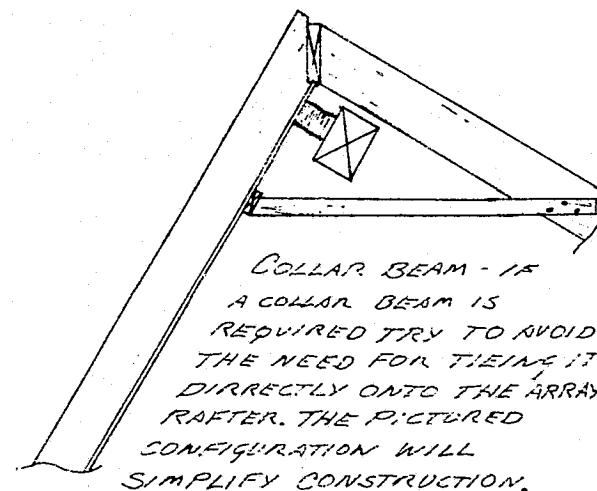 COLLAR BEAM - IF
A COLLAR BEAM IS
REQUIRED TRY TO AVOID
THE NEED FOR TIEING IT
DIRRECTLY ONTO THE ARRAY
RAFTER. THE PICTURED
CONFIGURATION WILL
SIMPLIFY CONSTRUCTION.